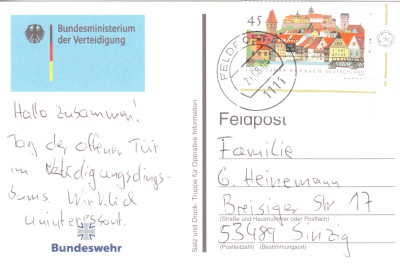 Bundesministerium
der Verteidigung
Hallo zusammen!
Tag der offenen Tür
im Verteidigungsdings-
bums. Wirklich
uninteressant.
Bundeswehr
Satz und Druck: Truppe für Operative Information
45
DEUTSCHLAND
FELDPOST
1111
Feldpost
Familie
G. Heinemann
Breisiger Str. 17
(Straße und Hausnummer oder Postfach)
53489 Sinzig
(Postleitzahl) (Bestimmungsort)